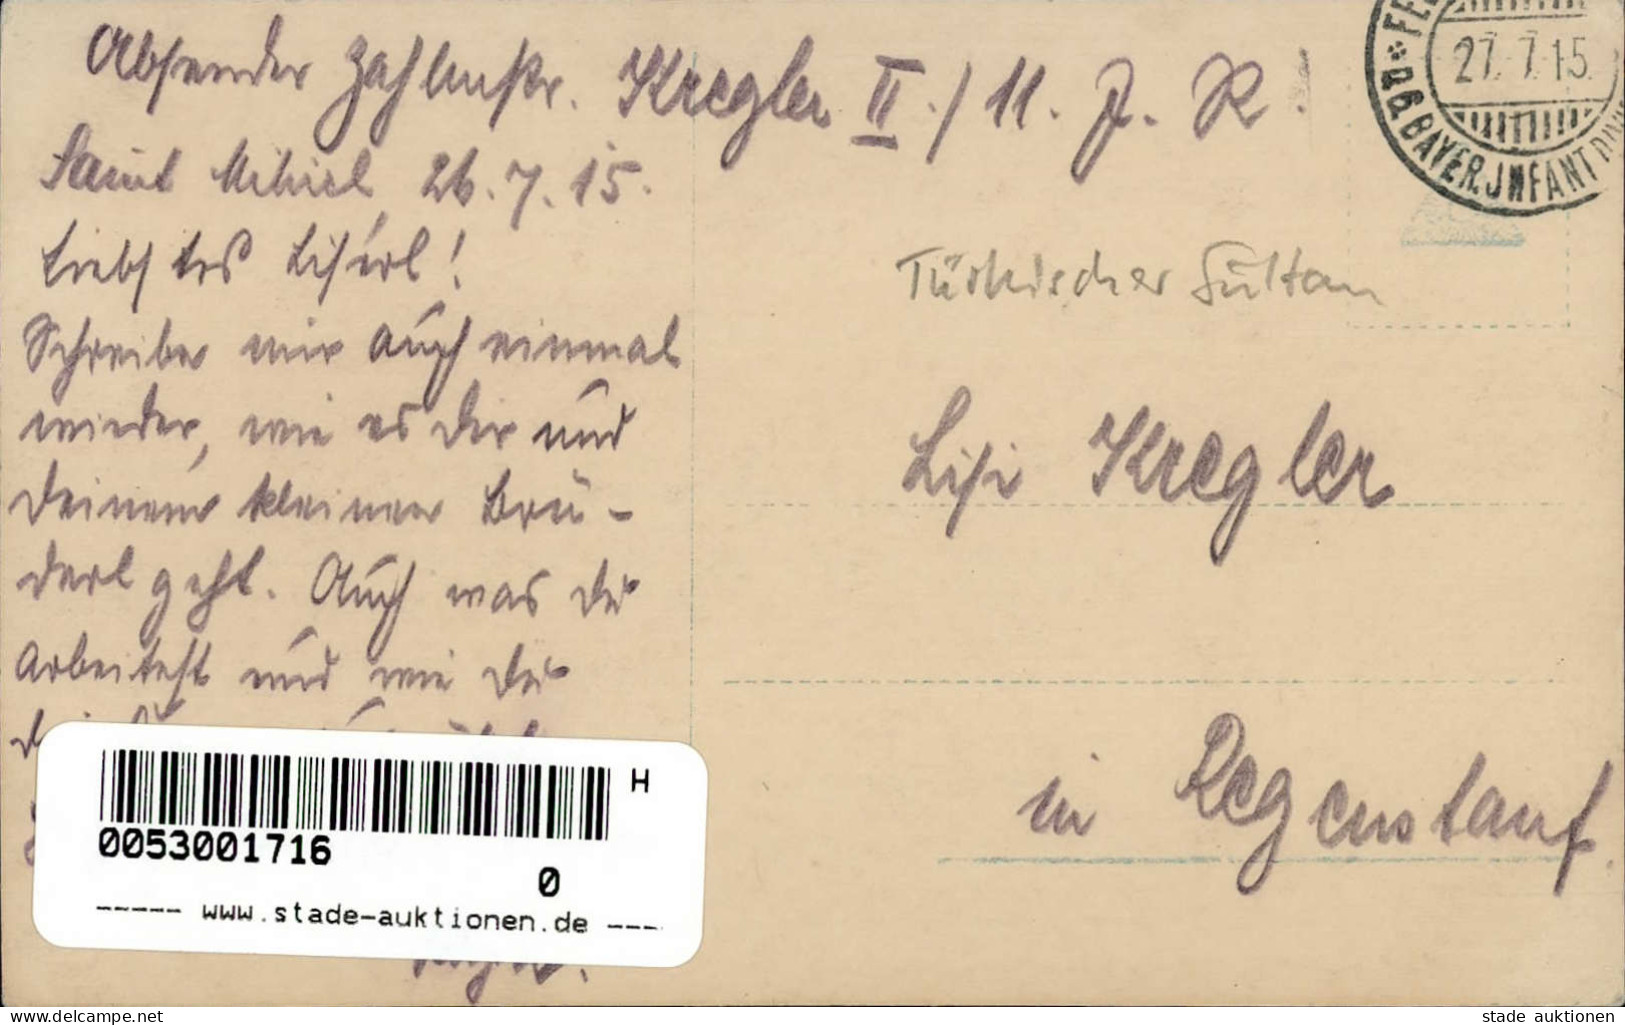 Absender Zahlmstr. Kregler II./11. J. R.
Saint Mihiel, 26.7.15.
Liebstes Liserl!
Schreibe mir auch einmal
wieder, wie es Dir und
Deinem kleinen Brü-
derl geht. Auch was Du
arbeitest und wie Du
Türkischer Sultan
Lisi Kregler
in Regenstauf.
27.7.15.
* a 6. BAYER. INFANT DIVI
H
0053001716
0
----- www.stade-auktionen.de ---
www.delcampe.net
stade_auktionen